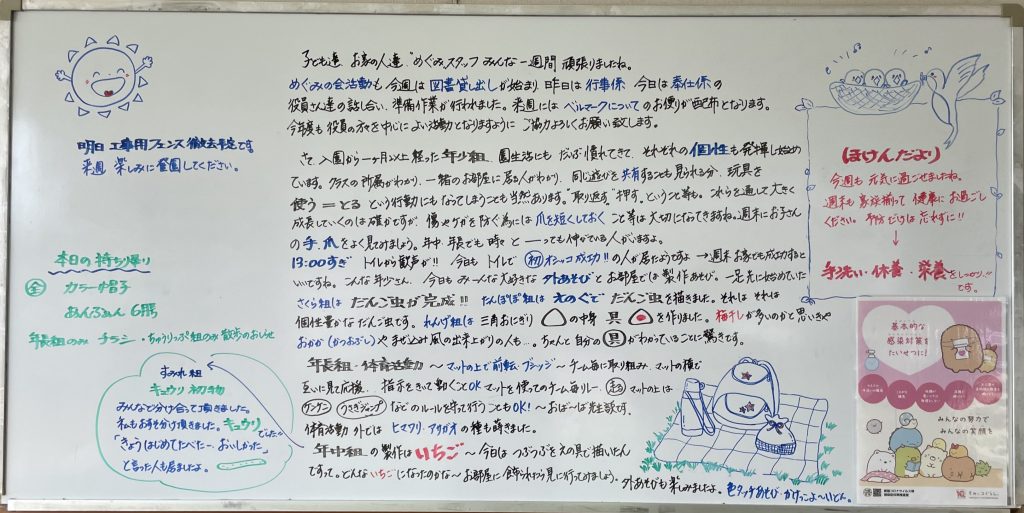 子ども達 お家の人達 めぐみスタッフ みんな一週間 頑張りましたね。
めぐみの会活動も 今週は 図書貸し出しが始まり 昨日は 行事係 今日は 奉仕係の
役員さん達の話し合い、準備作業が行われました。来週には ベルマークについてのお便りが配布となります。
今年度も 役員の方々を中心に よい活動となりますように ご協力よろしくお願い致します。
さて、入園から一ヶ月以上経った 年少組。園生活にも だいぶ慣れてきて、それぞれの個性も発揮し始め
ています。クラスの所属がわかり、一緒のお部屋に居る人がわかり、同じ遊びを共有することも見られる分、玩具を
使う＝とる という行動にも なってしまうことも当然あります。"取り返す" "押す" という姿等も。これらを通して大きく
成長していくのは確かですが 傷やケガを防ぐ為には 爪を短くしておく こと等は 大切になってきますね。週末にお子さん
の手、爪をよく見てみましょう。年中・年長でも 時々と――っても伸びている人がいますよ。
13:00すぎ トイレから歓声が!! 今日も トイレで 初 オシッコ成功!! の人が居たようですよ→週末 お家でも成功すると
いいですね。こんな年少さん、今日も み～んな大好きな 外あそびとお部屋では 製作あそび。一足先に始めていた
さくら組は だんご虫が完成!! たんぽぽ組は えのぐで だんご虫を描きました。それは それは
個性豊かなだんご虫です。れんげ組は 三角おにぎり の中身 具 を作りました。梅干しが多いのかと思いきや
おかか(かつおぶし)や まぜ込み風の出来上がりの人も…。ちゃんと自分の 具 がわかっていることに驚きです。
年長組・体育活動 ～ マットの上で前転 ブリッジ～チーム毎に取り組み、マットの横で
互いに見て応援、指示をきいて動くことOK マットを使ってのチーム毎リレー。初 マットの上は
ワンワン うさぎジャンプ などの ルールを守って行うことも OK!
体育活動 外では ヒマワリ・アサガオ の種も蒔きました。
年中組の製作は いちご ～今日は つぶつぶを えの具で描いたん
ですって。どんな いちごになったのかな～お部屋に
外あそびも楽しみましたよ。色タッチあそび・かけっこよ～いどん。
明日 工事用フェンス撤去予定です
来週 楽しみに登園してください。
本日の持ち帰り
全 カラー帽子
あんふぁん 6月
年長組のみ チラシ ・ちゅうりっぷ組のみ 散歩のおしらせ
すみれ組
キュウリ 初物
みんなと分け合って頂きました。
私もお手分け頂きました。キュウリ
「きょう はじめてたべた～、おいしかった」
と言った人も居ましたよ。
ほけんだより
今週も 元気に過ごせましたね。
週末も 家族揃って 健康にお過ごし
ください。予防だけは忘れずに!!
手洗い・休養・栄養をしっかり!!
です。
基本的な
感染対策を
たいせつに!
みんなの努力で
みんなの笑顔を